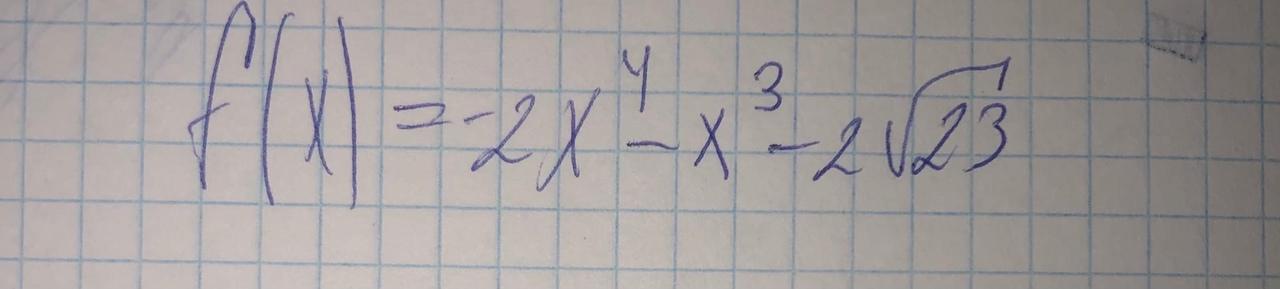 f(x) = -2x⁴ - x³ - 2√23